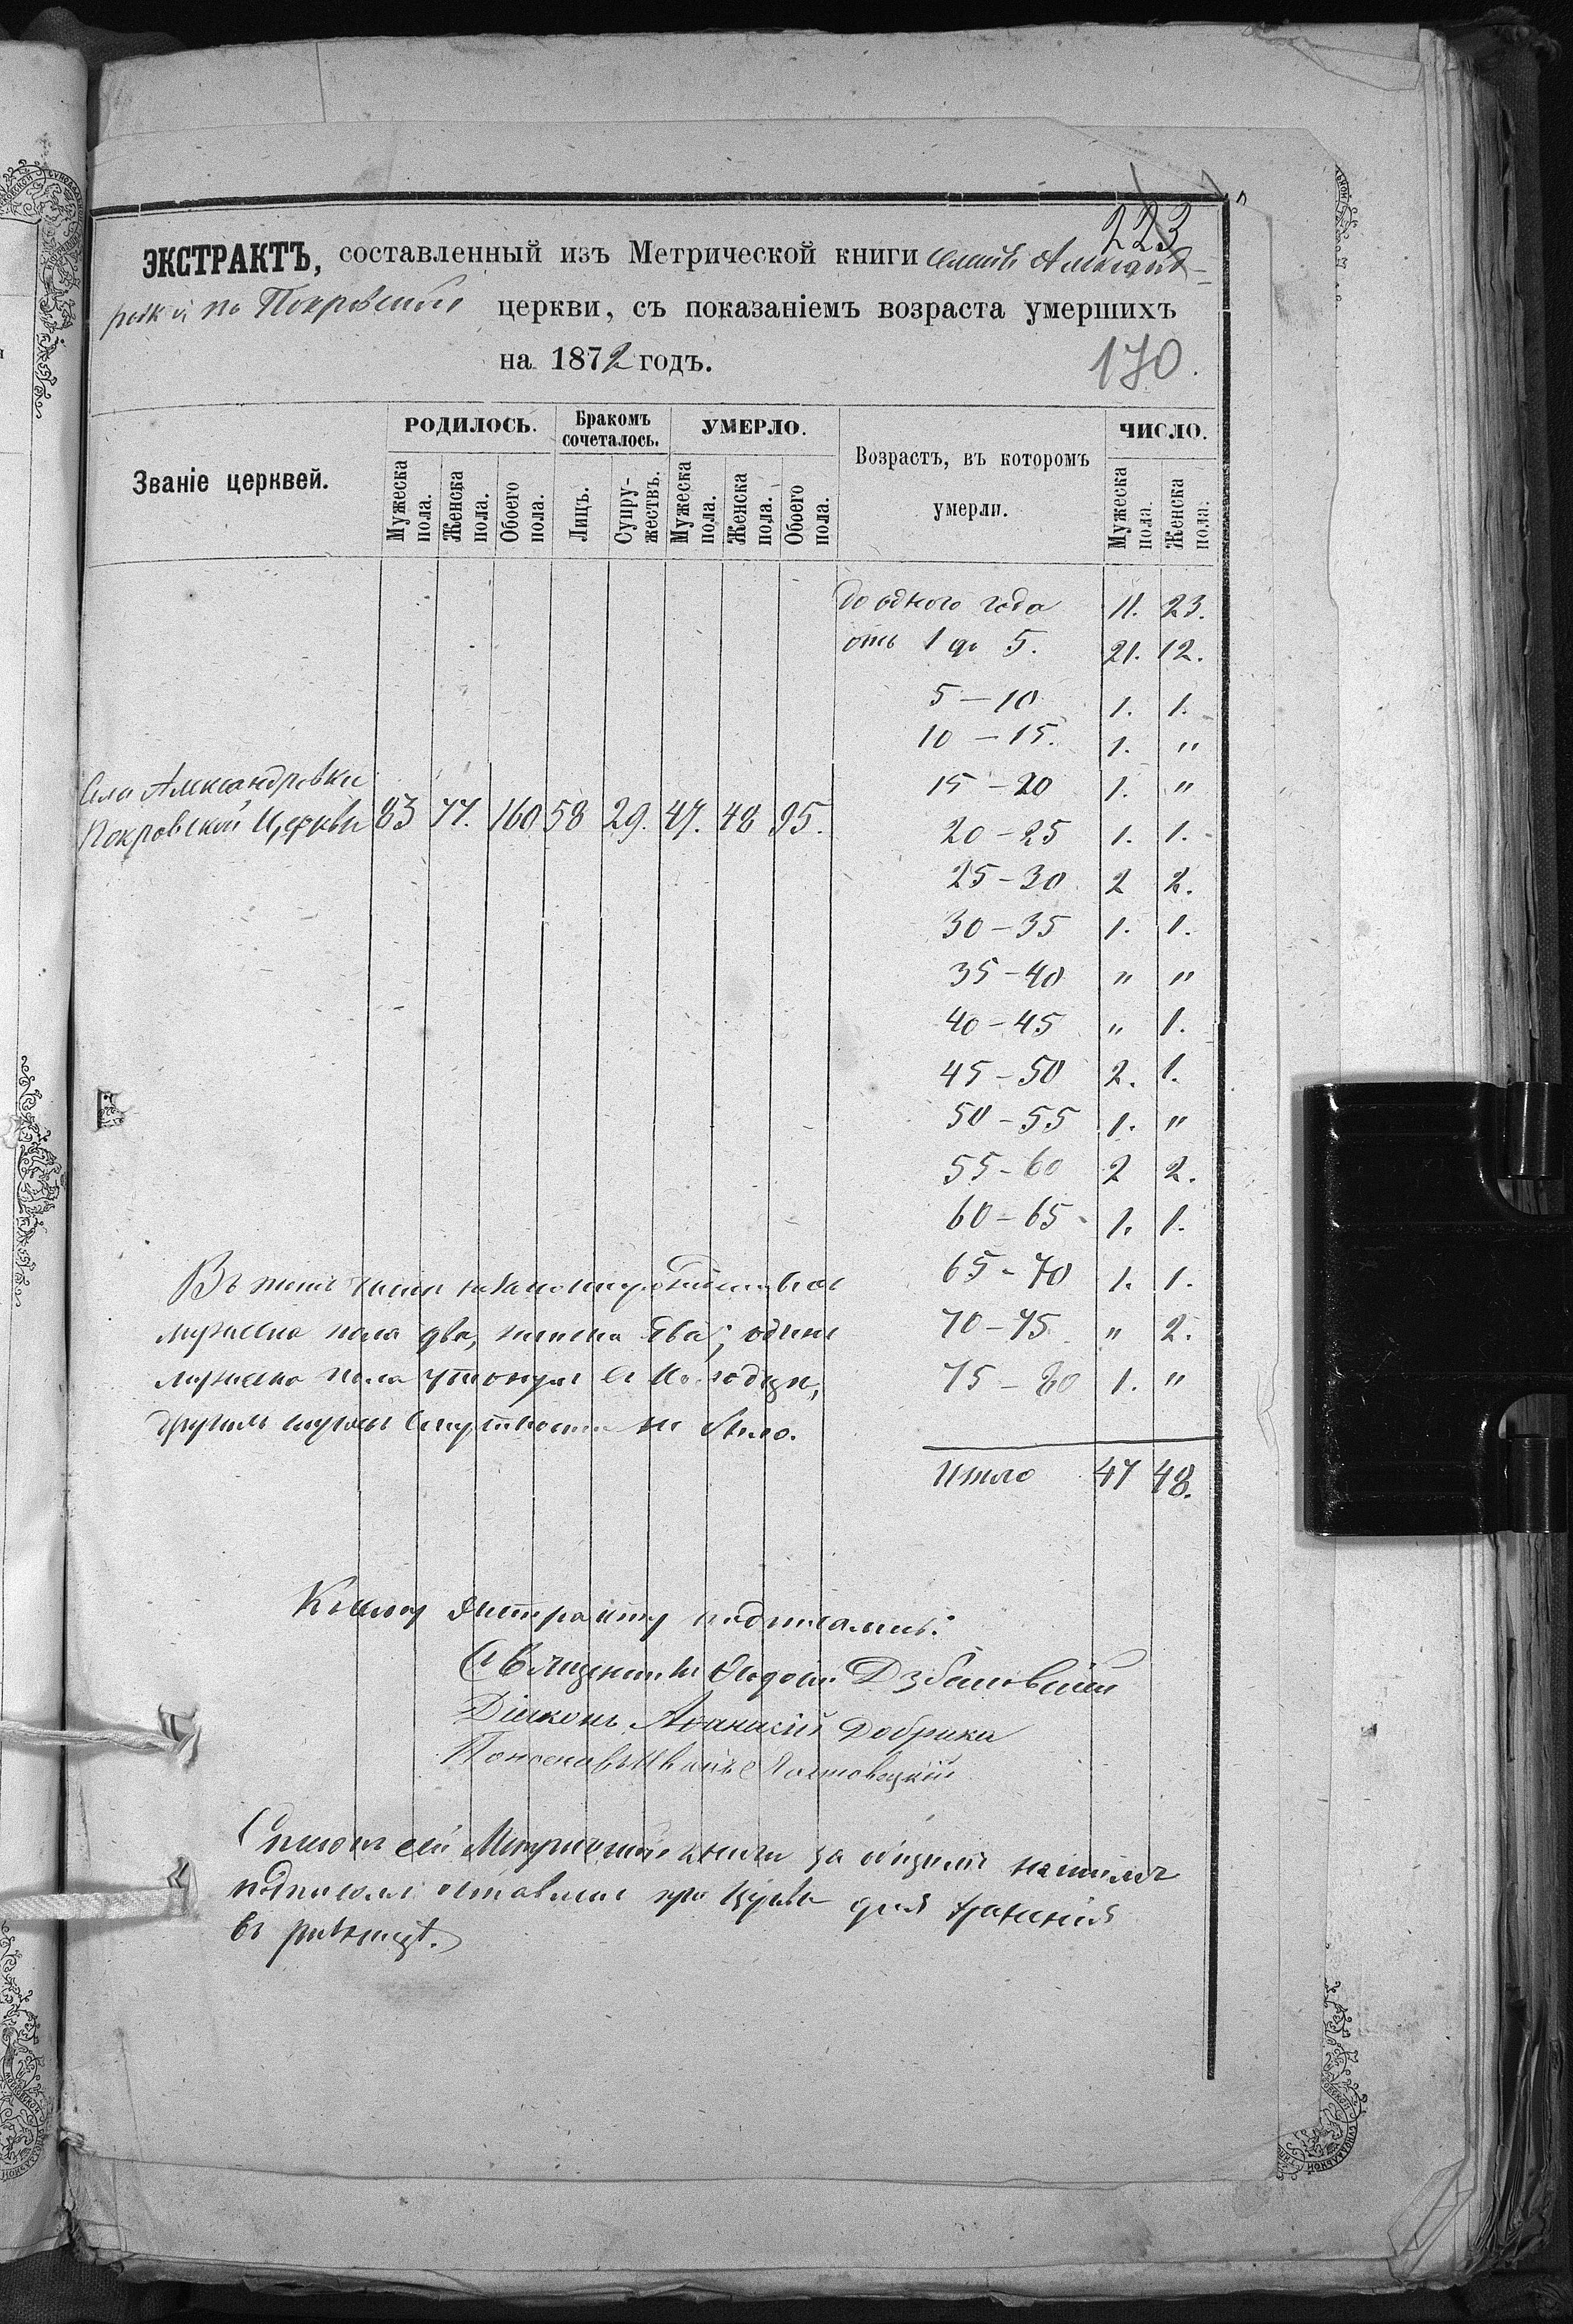 223
ЭКСТРАКТЪ, составленный изъ Метрической книги
Покровской церкви, съ показаніемъ возраста умершихъ
на 1872 годъ.
170.
Званіе церквей.
РОДИЛОСЬ.
Бракомъ сочеталось.
УМЕРЛО.
Возрастъ, въ которомъ умерли.
ЧИСЛО.
Мужеска пола.
Женска пола.
Обоего пола.
Лицъ.
Супружествъ.
Мужеска пола.
Женска пола.
Обоего пола.
Мужеска пола.
Женска пола.
до одного года 11. 23.
отъ 1 до 5. 21. 12.
5-10 1. 1.
10-15. 1. "
15-20 1. "
Села Александровки
Покровской Церкви 83 77. 160 58 29. 47. 48 95.
20-25 1. 1.
25-30 2 2.
30-35 1. 1.
35-40 " "
40-45 " 1.
45-50 2. 1.
50-55 1. "
55-60 2 2.
60-65 1. 1.
65-70 1. 1.
70-75. " 2.
75-80 1. "
Въ томъ числе
мужеска пола два, женска два; одинъ
мужеска пола утонулъ въ колодце,
не было.
Итого 47 48.
Къ сему Экстракту подписались:
Священникъ
Діаконъ Афанасій Добрика
Списокъ сей Метрической книги за общимъ нашимъ
подписомъ оставленъ при церкви для храненія
въ ризницѣ.